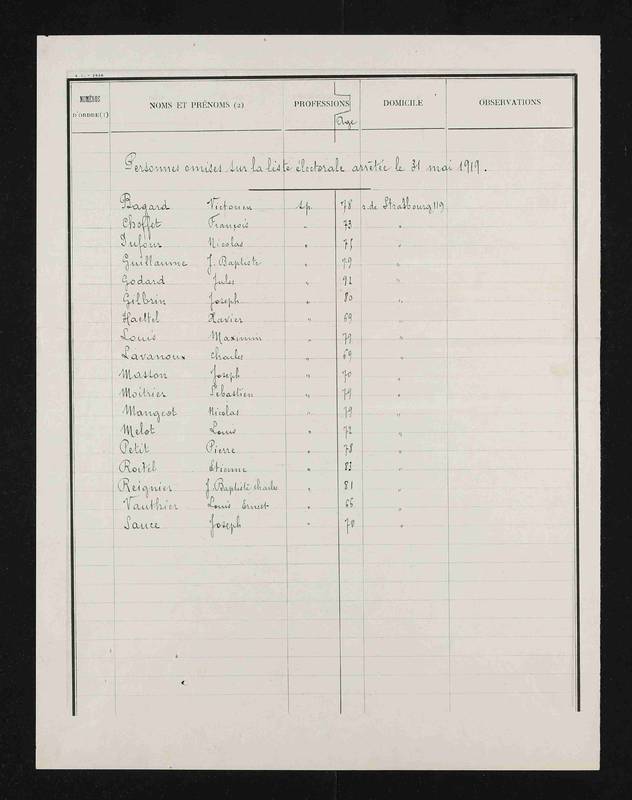 NUMÉROS D'ORDRE (1) NOMS ET PRÉNOMS (2) PROFESSIONS Age DOMICILE OBSERVATIONS
Personnes omises sur la liste électorale arrêtée le 31 mai 1919.
Bagard Victorien s.p. 78 r. de Strasbourg 119
Choffet François " 73 "
Dufour Nicolas " "
Guillaume J. Baptiste " 79 "
Godard Jules " 92 "
Gilbrin Joseph " 80 "
Haettel Xavier " 69 "
Louis Maximin " 79 "
Lavanoux Charles " 69 "
Masson Joseph " 70 "
Moitrier Sébastien " 79 "
Mangeot Nicolas " 79 "
Melot Louis " 72 "
Petit Pierre " 78 "
Etienne " 83 "
Reignier J. Baptiste Charles " 81 "
Vauthier Louis Ernest " 66 "
Sauce Joseph " 70 "